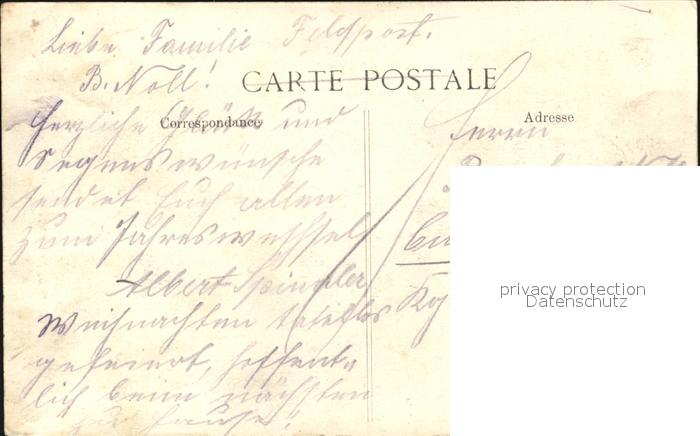 Liebe Familie Feldpost.
B. Noll!
CARTE POSTALE
Correspondance
Adresse
Herzliche Glück und
Segenswünsche
sendet Euch allen
zum Jahreswechsel
Albert Spindler
Weihnachten
gefeiert, hoffent-
lich beim nächsten
zu Hause!
Herrn
privacy protection
Datenschutz